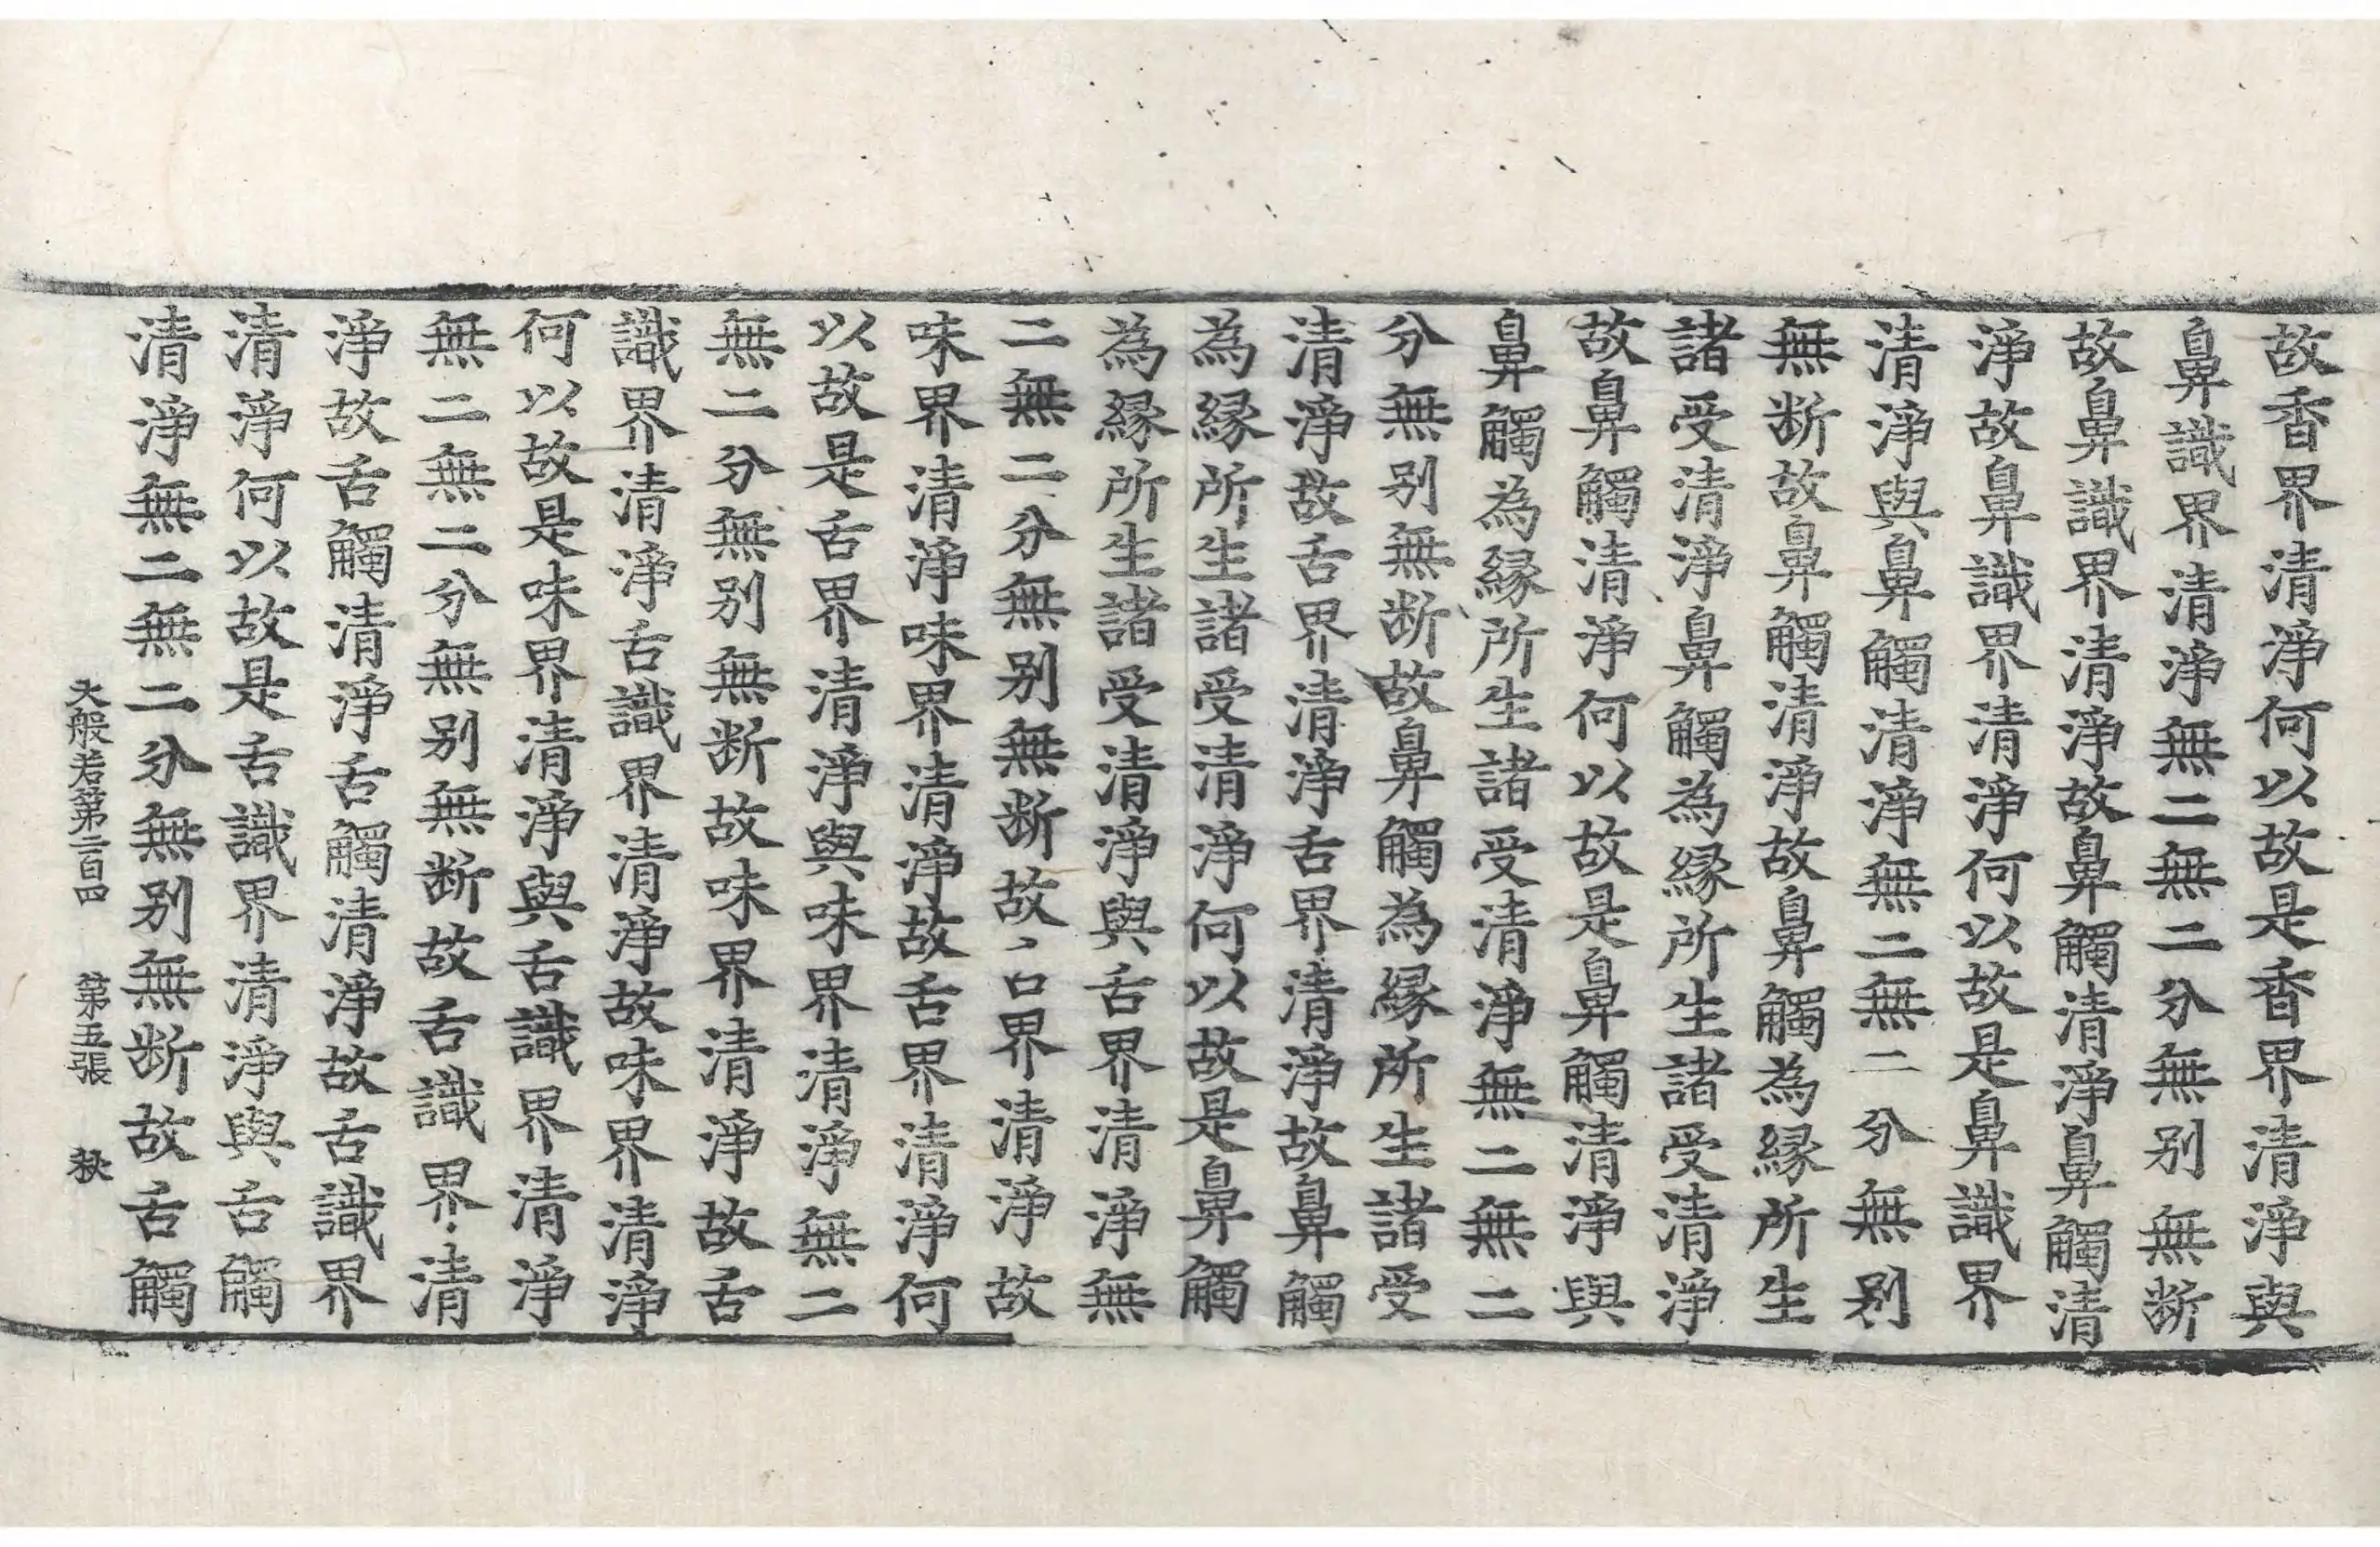 故香界清淨何以故是香界清淨與
鼻識界清淨無二無二分無别無断
故鼻識界清淨故鼻觸清淨鼻觸清
淨故鼻識界清淨何以故是鼻識界
清淨與鼻觸清淨無二無二分無别
無断故鼻觸清淨故鼻觸為縁所生
諸受清淨鼻觸為縁所生諸受清淨
故鼻觸清淨何以故是鼻觸清淨與
鼻觸為縁所生諸受清淨無二無二
分無别無断故鼻觸為縁所生諸受
清淨故舌界清淨舌界清淨故鼻觸
為縁所生諸受清淨何以故是鼻觸
為縁所生諸受清淨與舌界清淨無
二無二分無别無断故界清淨故
味界清淨味界清淨故舌界清淨何
以故是舌界清淨與味界清淨無二
無二分無别無断故味界清淨故舌
識界清淨舌識界清淨故味界清淨
何以故是味界清淨與舌識界清淨
無二無二分無别無断故舌識界清
淨故舌觸清淨舌觸清淨故舌識界
清淨何以故是舌識界清淨與舌觸
清淨無二無二分無别無断故舌觸
大般若第二百四 第五張 秋